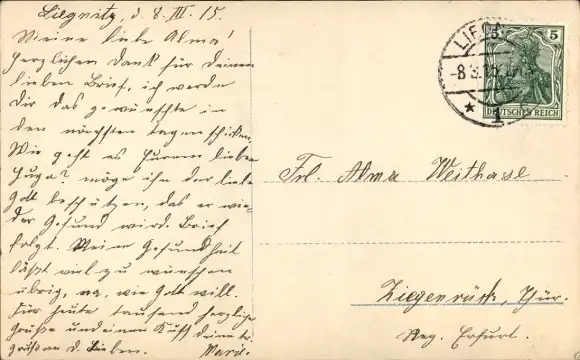 Liegnitz, d. 8. III. 15.
Meine liebe Alma!
Herzlichen Dank für Deinen
lieben Brief, ich werde
Dir das gewünschte in
den nächsten tagen schicken.
Wie geht es Eurem lieben
Hugo? möge ihn der liebe
Gott beschützen, das er wie-
der Gesund wird. Brief
folgt. Meine Gesundheit
läßt viel zu wünschen
übrig, na, wie Gott will.
Für heute tausend herzliche
Grüße und einen Kuß Deine
an d. Lieben.
LIEG
-8.3.15
* 1
5
DEUTSCHES REICH
Frl. Alma Weithase
Ziegenrück, Thür.
Reg. Erfurt.